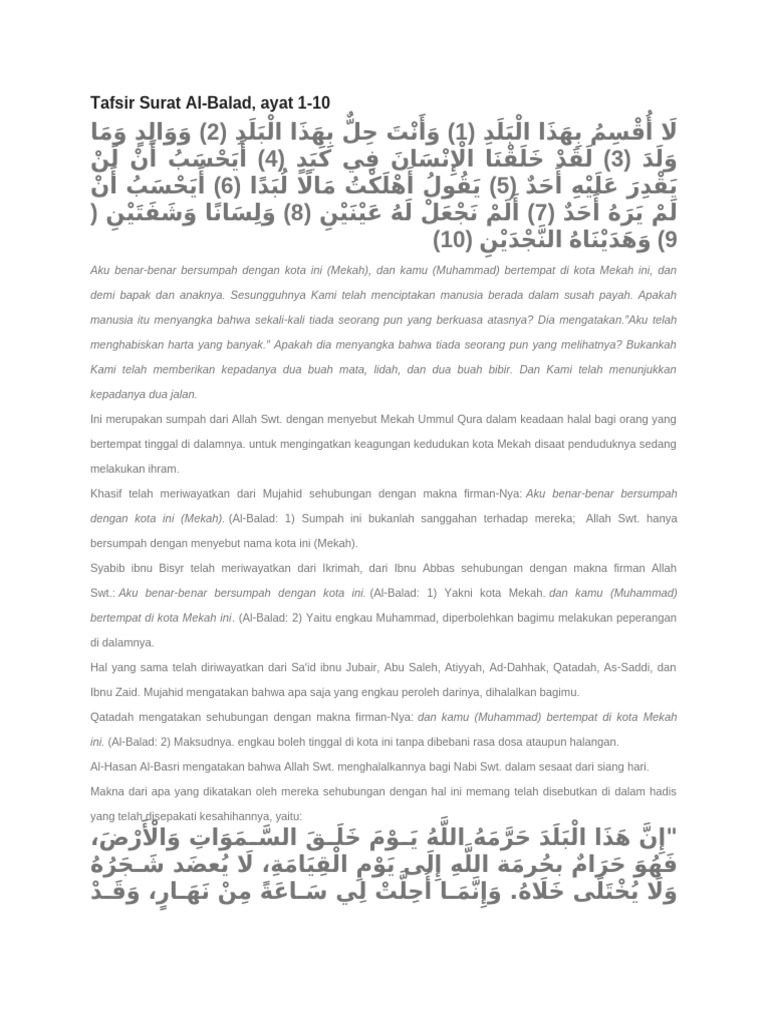 Tafsir Surat Al-Balad, ayat 1-10
لَا أُقْسِمُ بِهَذَا الْبَلَدِ (1) وَأَنْتَ حِلٌّ بِهَذَا الْبَلَدِ (2) وَوَالِدٍ وَمَا
وَلَدَ (3) لَقَدْ خَلَقْنَا الْإِنْسَانَ فِي كَبَدٍ (4) أَيَحْسَبُ أَنْ لَنْ
يَقْدِرَ عَلَيْهِ أَحَدٌ (5) يَقُولُ أَهْلَكْتُ مَالًا لُبَدًا (6) أَيَحْسَبُ أَنْ
لَمْ يَرَهُ أَحَدٌ (7) أَلَمْ نَجْعَلْ لَهُ عَيْنَيْنِ (8) وَلِسَانًا وَشَفَتَيْنِ (
9) وَهَدَيْنَاهُ النَّجْدَيْنِ (10)
Aku benar-benar bersumpah dengan kota ini (Mekah), dan kamu (Muhammad) bertempat di kota Mekah ini, dan
demi bapak dan anaknya. Sesungguhnya Kami telah menciptakan manusia berada dalam susah payah. Apakah
manusia itu menyangka bahwa sekali-kali tiada seorang pun yang berkuasa atasnya? Dia mengatakan."Aku telah
menghabiskan harta yang banyak." Apakah dia menyangka bahwa tiada seorang pun yang melihatnya? Bukankah
Kami telah memberikan kepadanya dua buah mata, lidah, dan dua buah bibir. Dan Kami telah menunjukkan
kepadanya dua jalan.
Ini merupakan sumpah dari Allah Swt. dengan menyebut Mekah Ummul Qura dalam keadaan halal bagi orang yang
bertempat tinggal di dalamnya. untuk mengingatkan keagungan kedudukan kota Mekah disaat penduduknya sedang
melakukan ihram.
Khasif telah meriwayatkan dari Mujahid sehubungan dengan makna firman-Nya: Aku benar-benar bersumpah
dengan kota ini (Mekah). (Al-Balad: 1) Sumpah ini bukanlah sanggahan terhadap mereka; Allah Swt. hanya
bersumpah dengan menyebut nama kota ini (Mekah).
Syabib ibnu Bisyr telah meriwayatkan dari Ikrimah, dari Ibnu Abbas sehubungan dengan makna firman Allah
Swt.: Aku benar-benar bersumpah dengan kota ini. (Al-Balad: 1) Yakni kota Mekah. dan kamu (Muhammad)
bertempat di kota Mekah ini. (Al-Balad: 2) Yaitu engkau Muhammad, diperbolehkan bagimu melakukan peperangan
di dalamnya.
Hal yang sama telah diriwayatkan dari Sa'id ibnu Jubair, Abu Saleh, Atiyyah, Ad-Dahhak, Qatadah, As-Saddi, dan
Ibnu Zaid. Mujahid mengatakan bahwa apa saja yang engkau peroleh darinya, dihalalkan bagimu.
Qatadah mengatakan sehubungan dengan makna firman-Nya: dan kamu (Muhammad) bertempat di kota Mekah
ini. (Al-Balad: 2) Maksudnya. engkau boleh tinggal di kota ini tanpa dibebani rasa dosa ataupun halangan.
Al-Hasan Al-Basri mengatakan bahwa Allah Swt. menghalalkannya bagi Nabi Swt. dalam sesaat dari siang hari.
Makna dari apa yang dikatakan oleh mereka sehubungan dengan hal ini memang telah disebutkan di dalam hadis
yang telah disepakati kesahihannya, yaitu:
"إِنَّ هَذَا الْبَلَدَ حَرَّمَهُ اللَّهُ يَـوْمَ خَلَـقَ السَّـمَوَاتِ وَالْأَرْضَ،
فَهُوَ حَرَامٌ بحُرمَة اللَّهِ إِلَى يَوْمِ الْقِيَامَةِ، لَا يُعضَد شَـجَرُهُ
وَلَا يُخْتَلَى خَلَاهُ. وَإِنَّمَـا أُحِلَّتْ لِي سَـاعَةً مِنْ نَهَـارٍ، وَقَـدْ